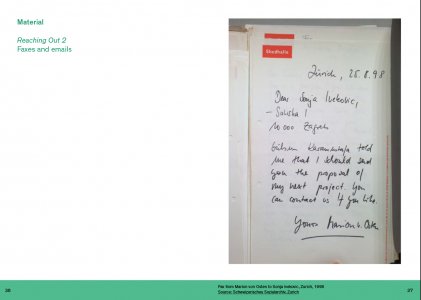 Material
Reaching Out 2
Faxes and emails
Shedhalle
Zürich, 25.8.98
Dear Sonja Ivekovic,
10 000 Zagreb
told
me that I should send
you the proposal of
my next project. You
can contact us if you like.
Yours Marion v. Osten
26
Fax from Marion von Osten to Sonja Ivekovic, Zurich, 1998
Source: Schweizerisches Sozialarchiv, Zurich
27